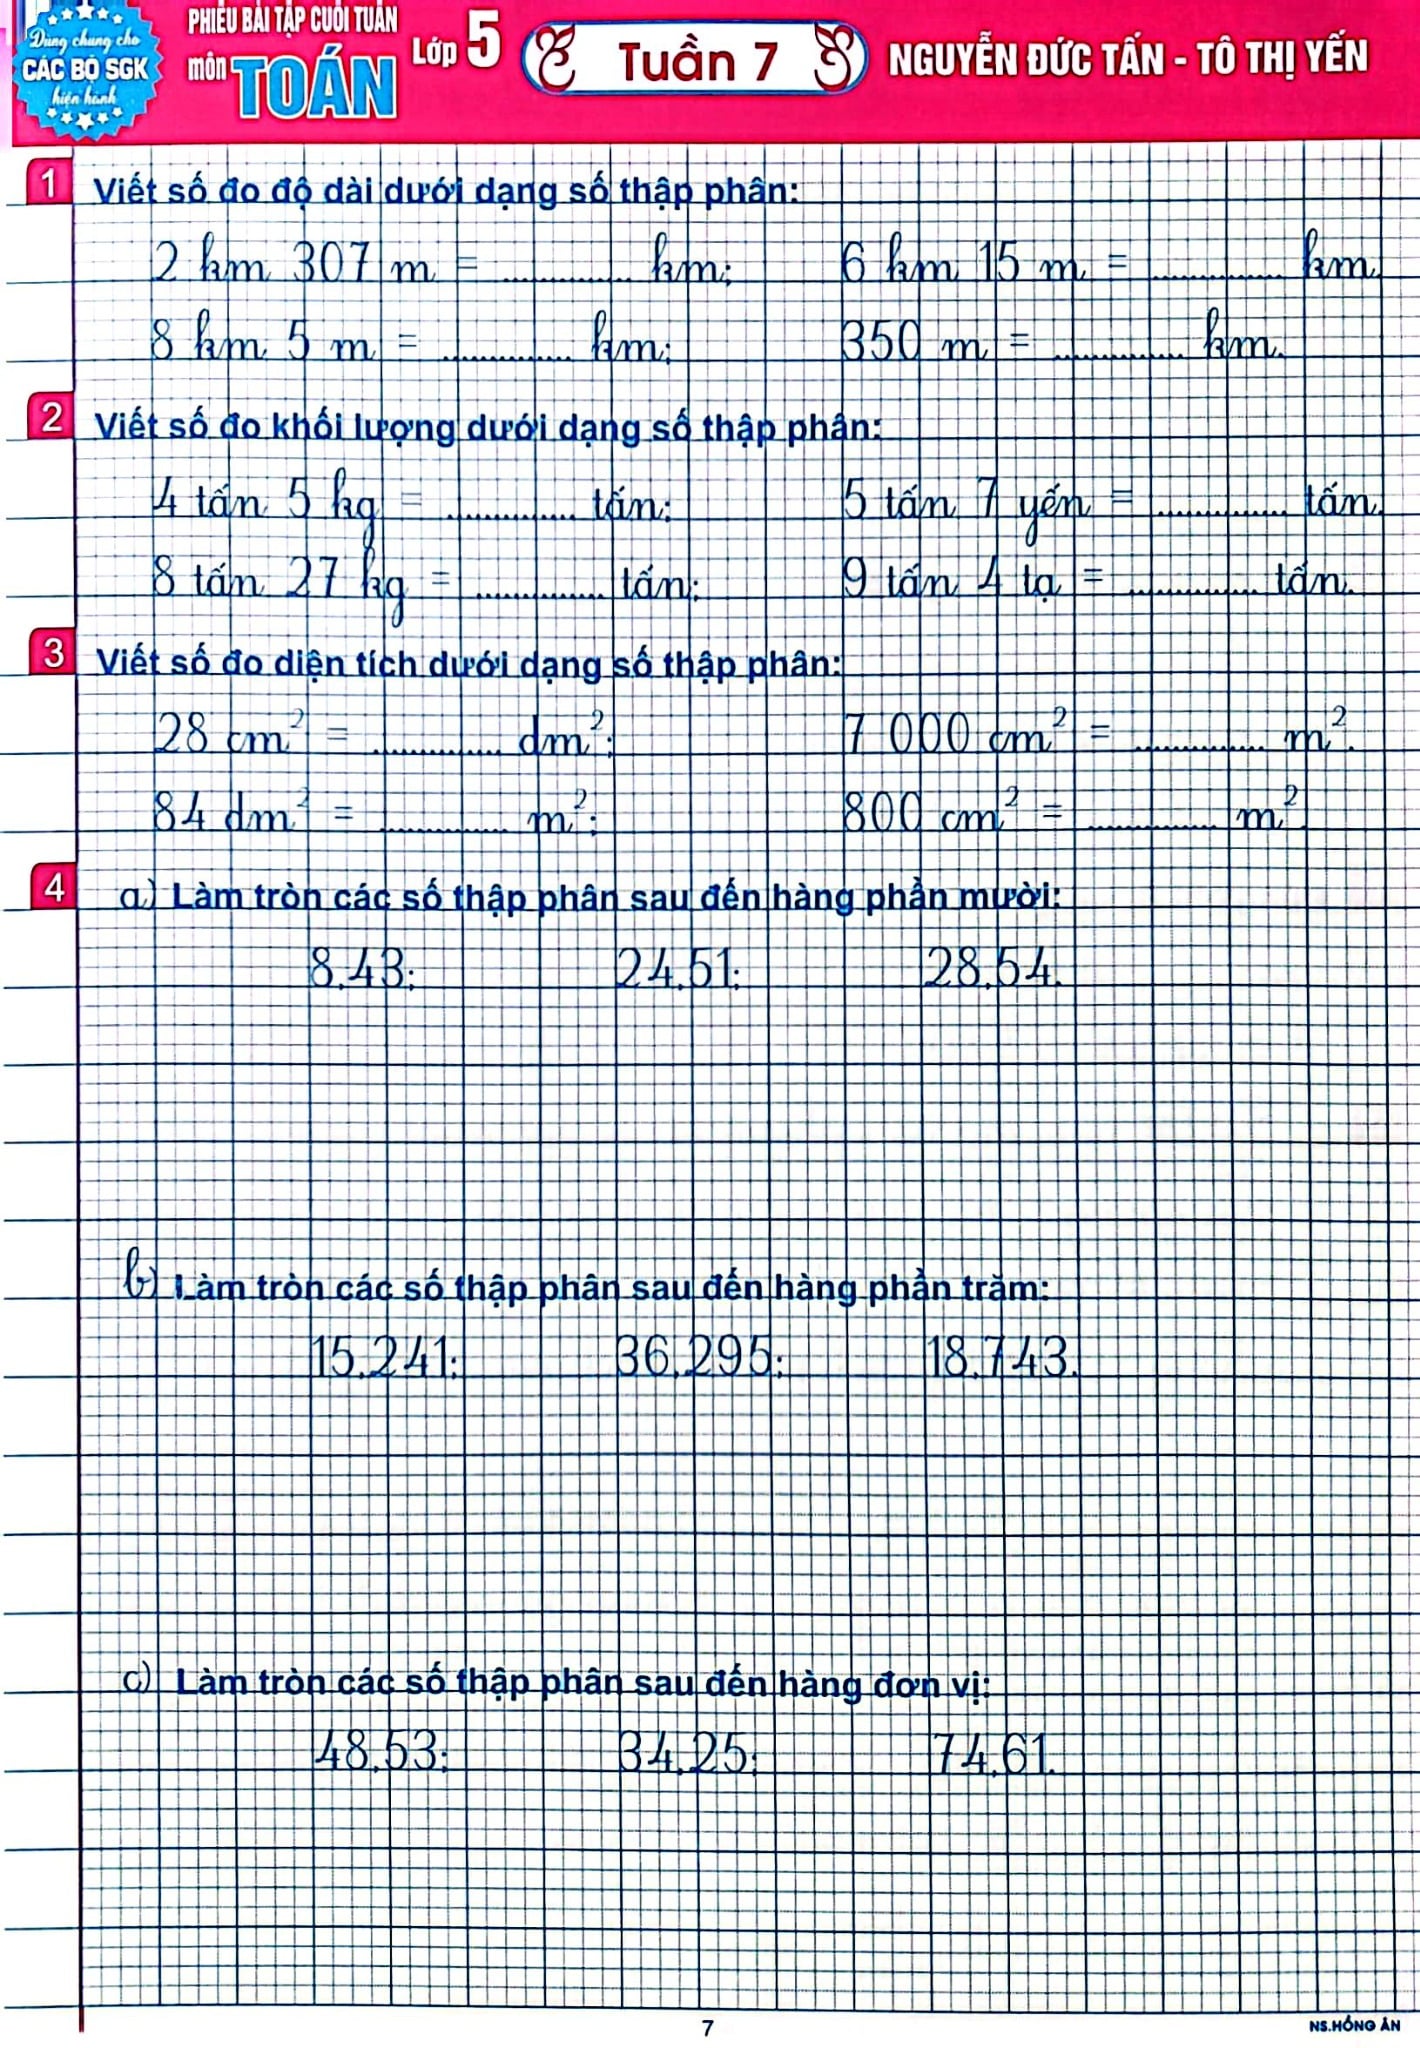 Dùng chung cho
CÁC BỘ SGK
hiện hành
PHIẾU BÀI TẬP CUỐI TUẦN
môn TOÁN Lớp 5
Tuần 7
NGUYỄN ĐỨC TẤN - TÔ THỊ YẾN
1 Viết số đo độ dài dưới dạng số thập phân:
2 km 307 m = ............ km; 6 km 15 m = ............ km.
8 km 5 m = ............ km; 350 m = ............ km.
2 Viết số đo khối lượng dưới dạng số thập phân:
4 tấn 5 kg = ............ tấn; 5 tấn 7 yến = ............ tấn.
8 tấn 27 kg = ............ tấn; 9 tấn 4 tạ = ............ tấn.
3 Viết số đo diện tích dưới dạng số thập phân:
28 cm² = ............ dm²; 7 000 cm² = ............ m².
84 dm² = ............ m²; 800 cm² = ............ m².
4 a) Làm tròn các số thập phân sau đến hàng phần mười:
8,43; 24,51; 28,54.
b) Làm tròn các số thập phân sau đến hàng phần trăm:
15,241; 36,295; 18,743.
c) Làm tròn các số thập phân sau đến hàng đơn vị:
48,53; 34,25; 74,61.
7
NS.HỒNG ÂN